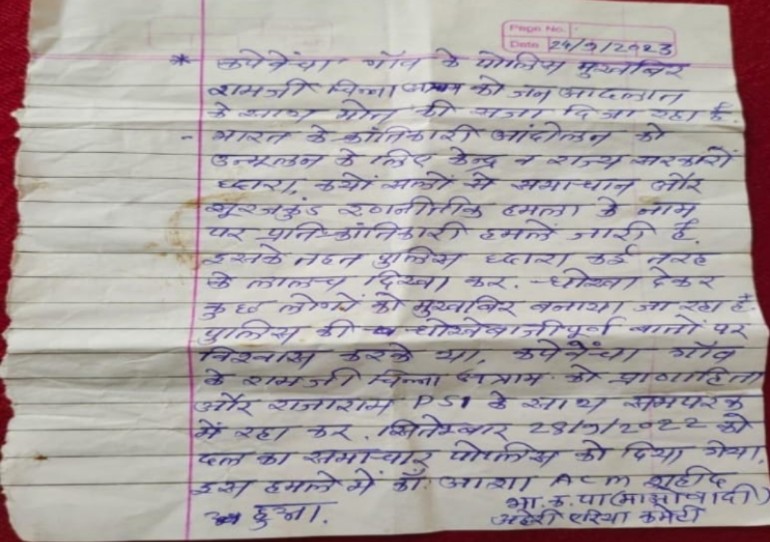 Page No.
Date 24/9/2023
* कपेवंचा गाँव के पोलिस मुखबिर
रामजी चिन्ना आत्राम को जन आदालात
के साथ मौत की सजा दिजा रहा है.
- भारत के क्रांतिकारी आंदोलन को
उन्मूलन के लिए केन्द्र व राज्य सरकारों
ध्दारा, सालों से समाधान और
सूरजकुंड रणनीतिक हमला के नाम
पर प्रति-क्रांतिकारी हमलें जारी है.
इसके तहत पुलिस ध्दारा कई तरह
के लालच दिखा कर. धोखा देकर
कुछ लोगों को मुखबिर बनाया जा रहा है
पुलिस की धोखेबाजीपूर्ण बातों पर
विश्वास करके या, कपेवंचा गाँव
के रामजी चिन्ना आत्राम को प्राणहिता
और राजाराम PSI के साथ समपरक
में रहा कर. सितेम्बार 28/9/2022 को
दल का समाचार पोलिस को दिया गया.
इस हमले में काँ. आशा ACM शहीद
हुआ.
भा.क.पा(माओवादी)
अहेरी एरिया कमेटी